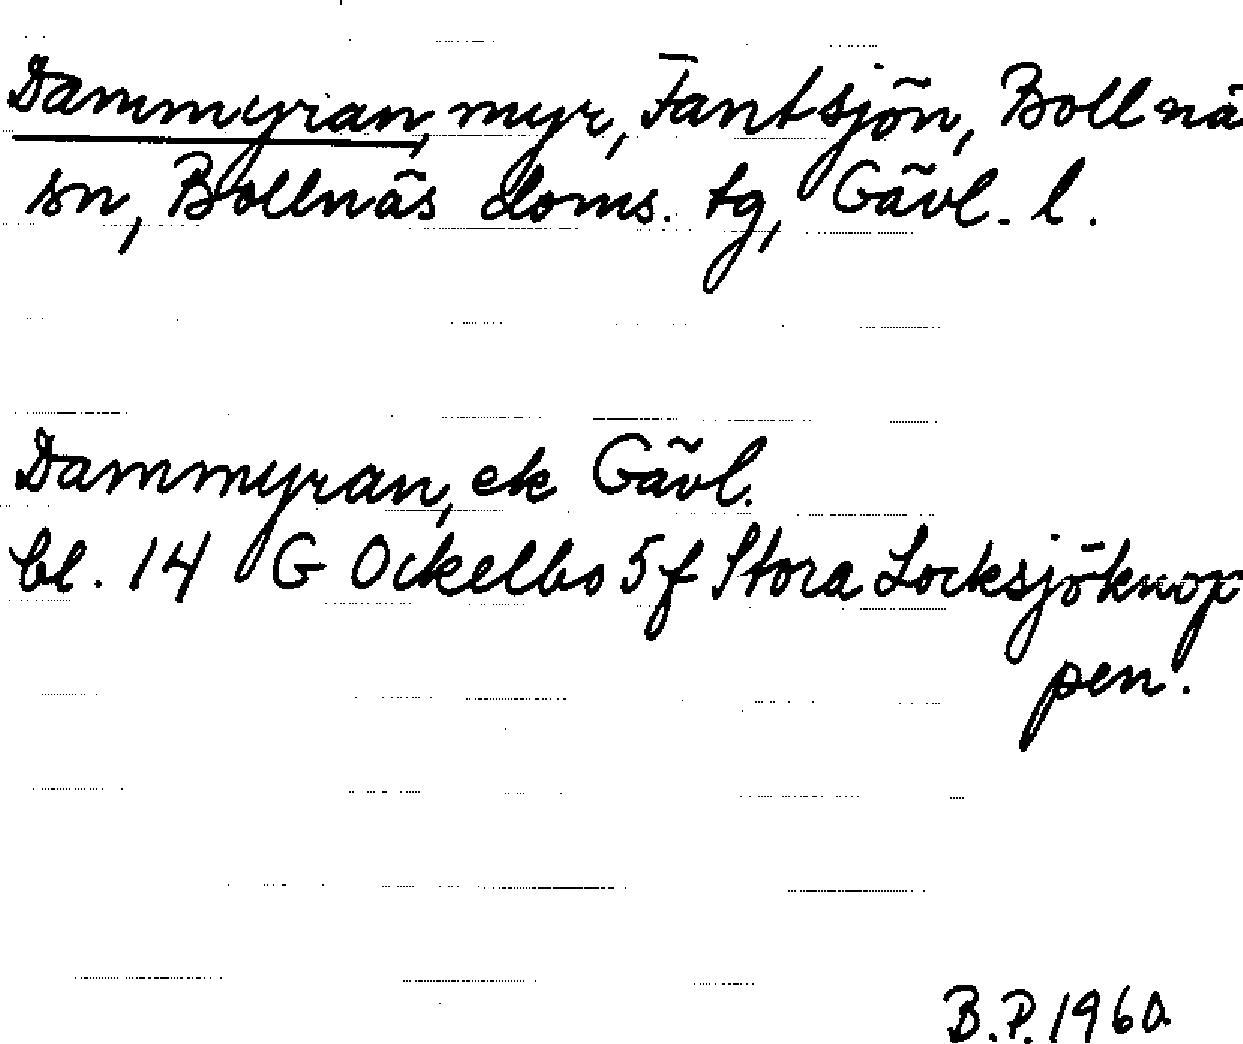 Dammyran, myr, Fantsjön, Bollnä
sn, Bollnäs doms. tg, Gävl. l.
Dammyran, ek Gävl.
bl. 14 G Ockelbo 5f Stora Locksjöknop
pen.
B.P. 1960